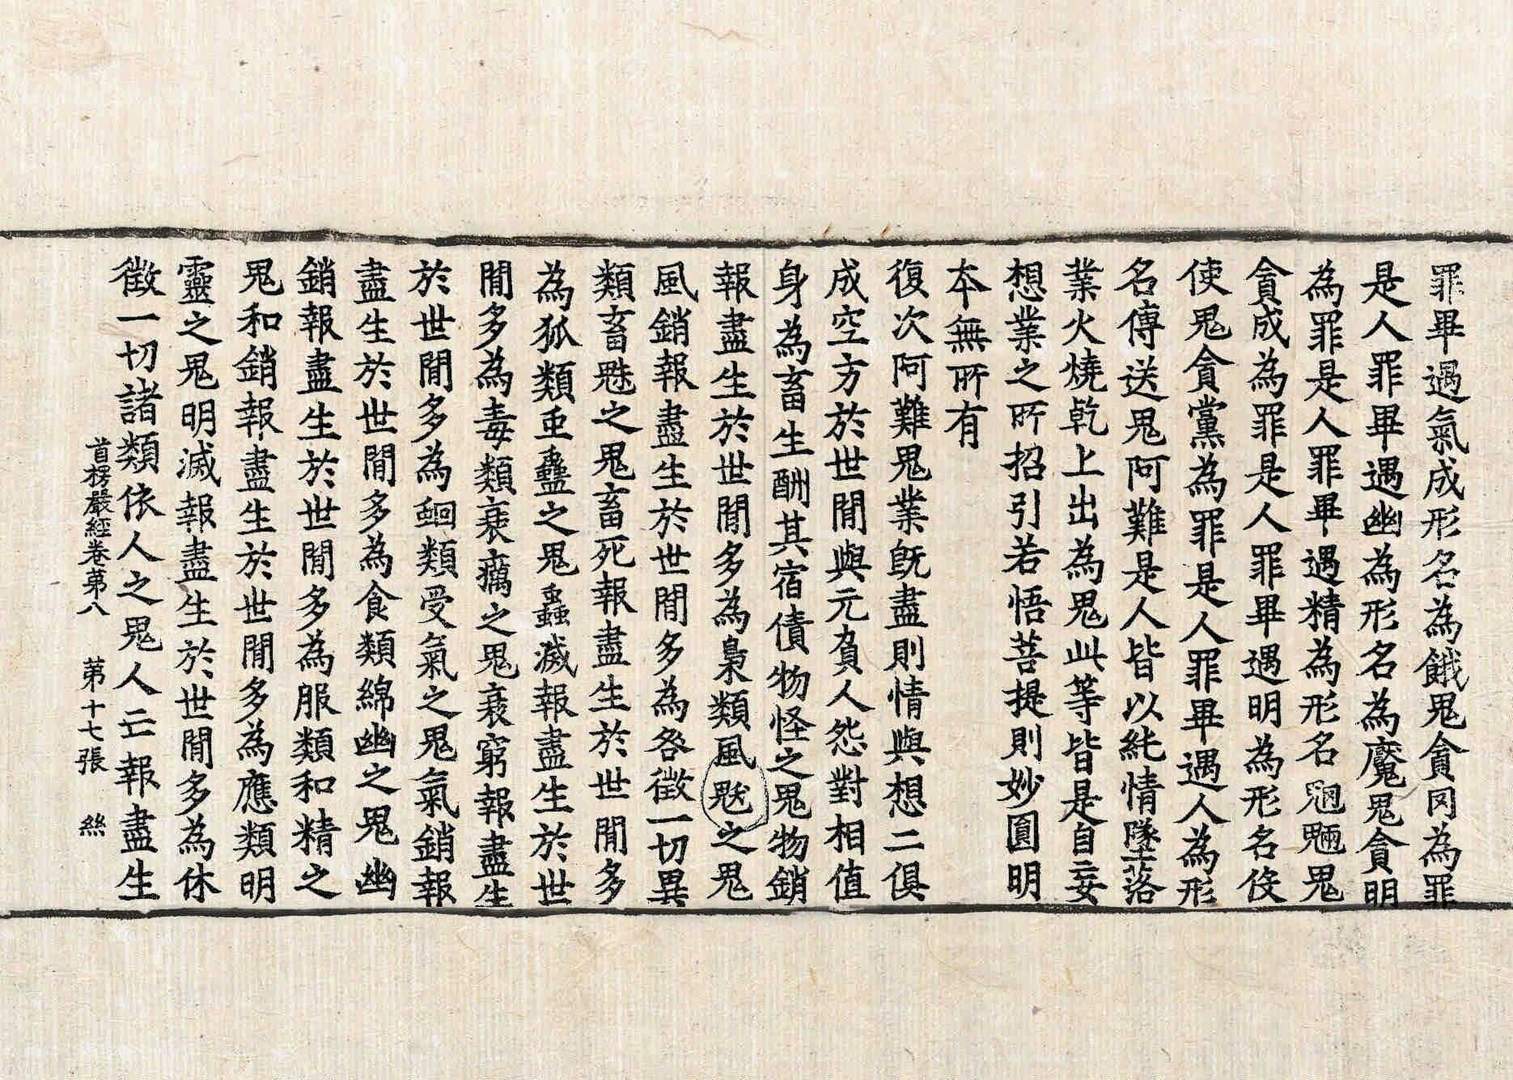 罪畢遇氣成形名為餓鬼貪罔為罪
是人罪畢遇幽為形名為魘鬼貪明
為罪是人罪畢遇精為形名魍魎鬼
貪成為罪是人罪畢遇明為形名役
使鬼貪黨為罪是人罪畢遇人為形
名傳送鬼阿難是人皆以純情墜落
業火燒乾上出為鬼此等皆是自妄
想業之所招引若悟菩提則妙圓明
本無所有
復次阿難鬼業既盡則情與想二俱
成空方於世閒與元負人怨對相值
身為畜生酬其宿債物怪之鬼物銷
報盡生於世閒多為梟類風魃之鬼
風銷報盡生於世閒多為咎徵一切異
類畜魅之鬼畜死報盡生於世閒多
為狐類虫蠱之鬼蠱滅報盡生於世
閒多為毒類衰癘之鬼衰窮報盡生
於世閒多為蛔類受氣之鬼氣銷報
盡生於世閒多為食類綿幽之鬼幽
銷報盡生於世閒多為服類和精之
鬼和銷報盡生於世閒多為應類明
靈之鬼明滅報盡生於世閒多為休
徵一切諸類依人之鬼人亡報盡生
首楞嚴經卷第八 第十七張 絲